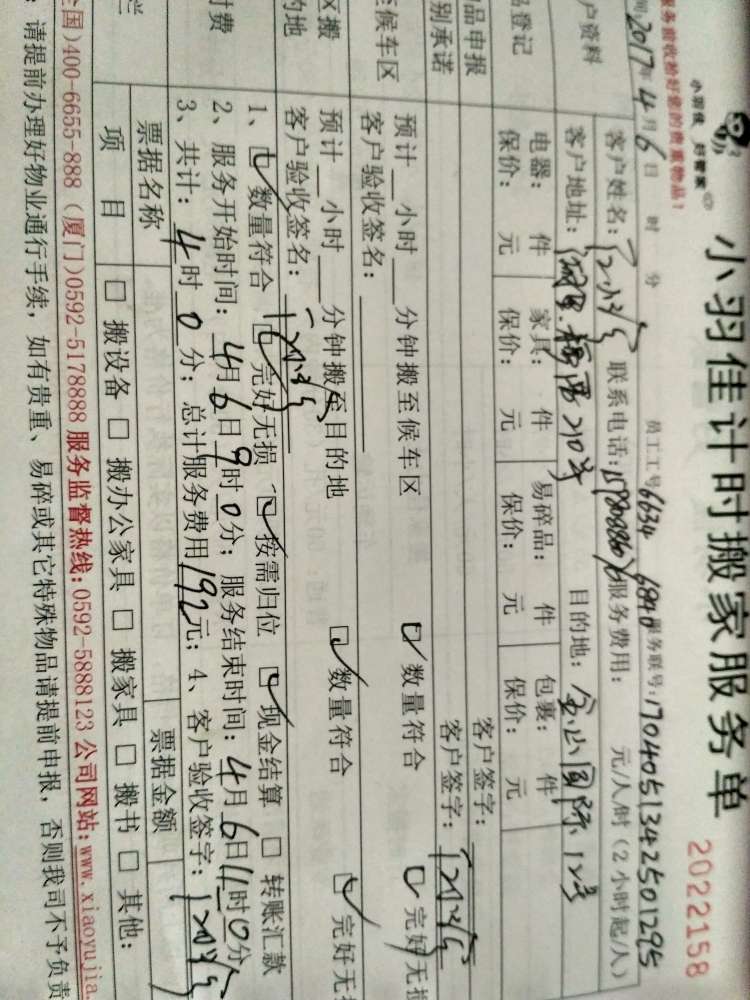 小羽佳计时搬家服务单
2022158
服务前收拾好您的贵重物品!
2017年4月6日 时 分 员工工号 6634 6840 服务联号:1704051342501295
户资料
客户姓名: 联系电话: 服务费用: 元/人/时(2小时起/人)
客户地址: 210号 目的地: 金山国际12号
品登记
电器: 件 家具: 件 易碎品: 件 包裹: 件
保价: 元 保价: 元 保价: 元 保价: 元
品申报 客户签字:
别承诺 客户签字:
至候车区
预计__小时__分钟搬至候车区 数量符合 完好无损
客户验收签名:
区搬
的地
预计__小时__分钟搬至目的地 数量符合 完好无损
客户验收签名:
时费
1、数量符合 完好无损 按需归位 现金结算 转账汇款
2、服务开始时间:4月6日9时0分;服务结束时间:4月6日11时0分
3、共计:4时0分;总计服务费用192元;4、客户验收签字:
票据名称 票据金额
项目 □ 搬设备 □ 搬办公家具 □ 搬家具 □ 搬书 □ 其他:
全国)400-6655-888 (厦门)0592-5178888 服务监督热线:0592-5888123 公司网站:www.xiaoyujia.
:请提前办理好物业通行手续,如有贵重、易碎或其它特殊物品请提前申报,否则我司不予负责